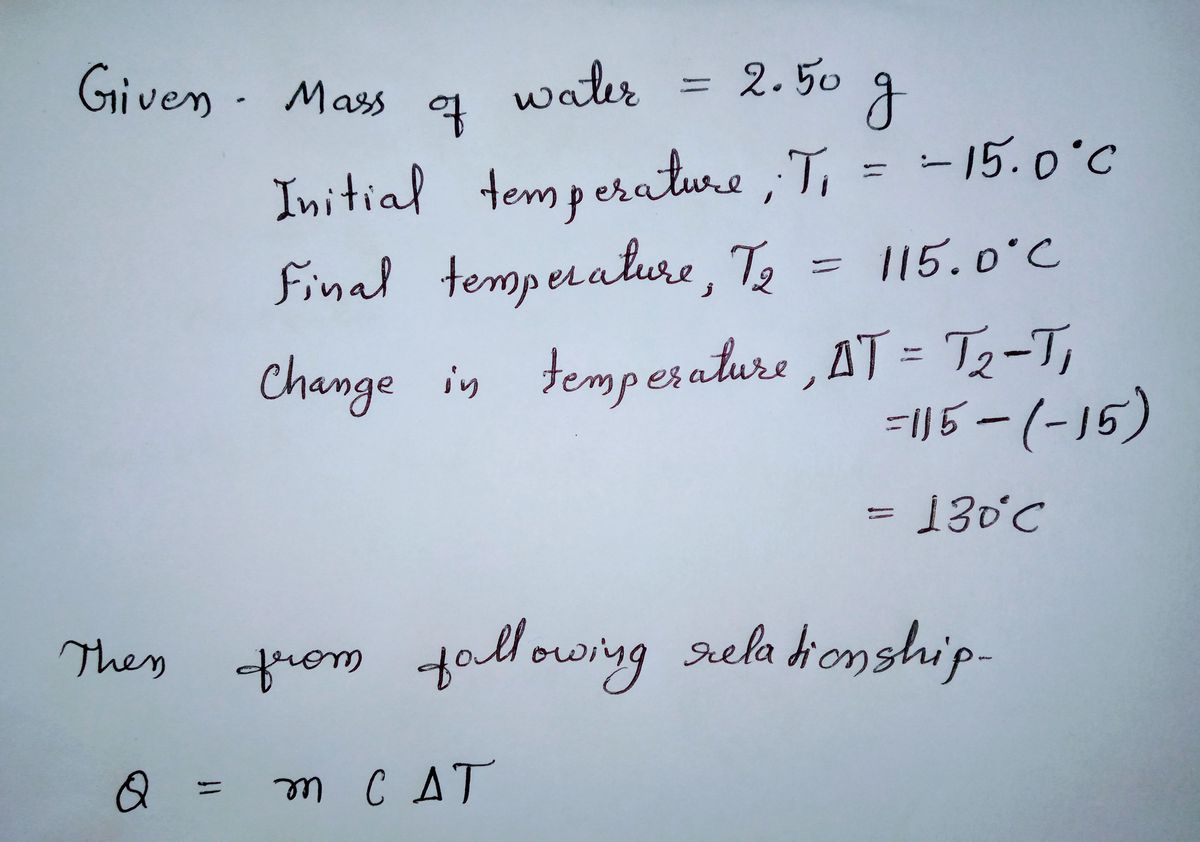 Given - Mass of water = 2.50 g
Initial temperature, T₁ = -15.0°C
Final temperature, T₂ = 115.0°C
Change in temperature, ΔT = T₂-T₁
=115-(-15)
= 130°C
Then from following relationship-
Q = m C ΔT